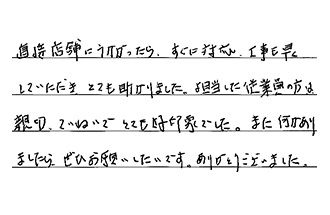 直接店舗にうかがったら、すぐに対応、工事も早く
していただき とても助かりました。担当した従業員の方も
親切、ていねいで とても好印象でした。また何かあり
ましたら ぜひお願いしたいです。ありがとうございました。